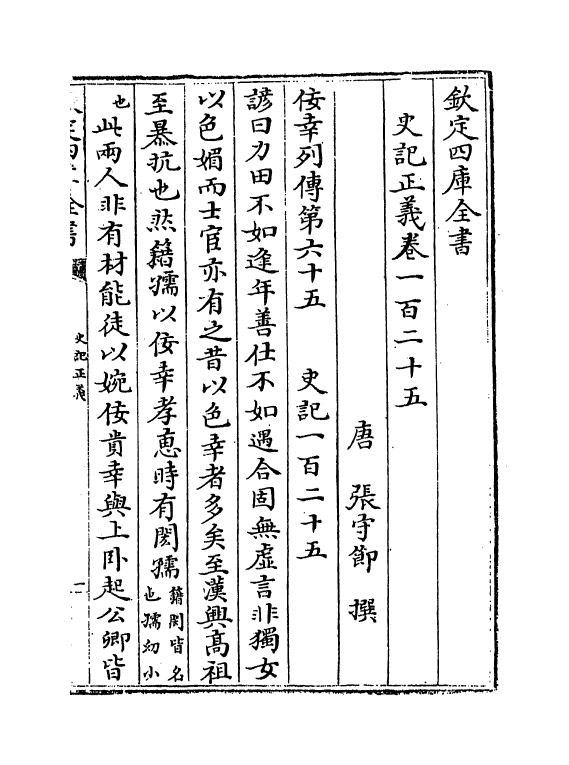 欽定四庫全書
史記正義卷一百二十五
唐 張守節 撰
佞幸列傳第六十五 史記一百二十五
諺曰力田不如逢年善仕不如遇合固無虛言非獨女
以色媚而士官亦有之昔以色幸者多矣至漢興高祖
至暴抗也然籍孺以佞幸孝恵時有閎孺籍閎皆名
也孺幼小
也此兩人非有材能徒以婉佞貴幸與上卧起公卿皆
史記正義